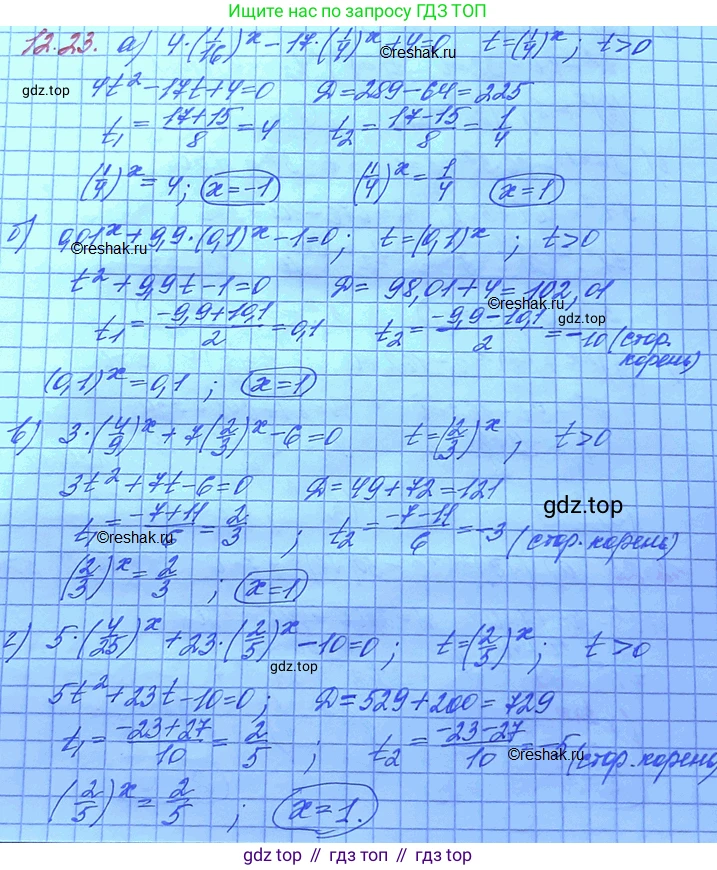 Ищите нас по запросу ГДЗ ТОП
12.23. а) 4·(1/16)^x − 17·(1/4)^x + 4 = 0   t = (1/4)^x ; t > 0
gdz.top
4t² − 17t + 4 = 0   Д = 289 − 64 = 225
t₁ = (17+15)/8 = 4   t₂ = (17−15)/8 = 1/4
(1/4)^x = 4 ; x = −1   (1/4)^x = 1/4   x = 1
б) 0,01^x + 9,9·(0,1)^x − 1 = 0 ; t = (0,1)^x ; t > 0
©reshak.ru
t² + 9,9t − 1 = 0   Д = 98,01 + 4 = 102,01
©reshak.ru
t₁ = (−9,9+10,1)/2 = 0,1   t₂ = (−9,9−10,1)/2 = −10 (стор. корень)
gdz.top
(0,1)^x = 0,1 ; x = 1
в) 3·(4/9)^x + 7(2/3)^x − 6 = 0   t = (2/3)^x , t > 0
3t² + 7t − 6 = 0   Д = 49 + 72 = 121
gdz.top
t₁ = (−7+11)/6 = 2/3 ; t₂ = (−7−11)/6 = −3 (стор. корень)
©reshak.ru
(2/3)^x = 2/3 ; x = 1
г) 5·(4/25)^x + 23·(2/5)^x − 10 = 0 ; t = (2/5)^x ; t > 0
gdz.top
5t² + 23t − 10 = 0 ; Д = 529 + 200 = 729
t₁ = (−23+27)/10 = 2/5 ; t₂ = (−23−27)/10 = −5 (стор. корень)
©reshak.ru
(2/5)^x = 2/5 ; x = 1.
gdz.top // гдз.топ // гдз топ